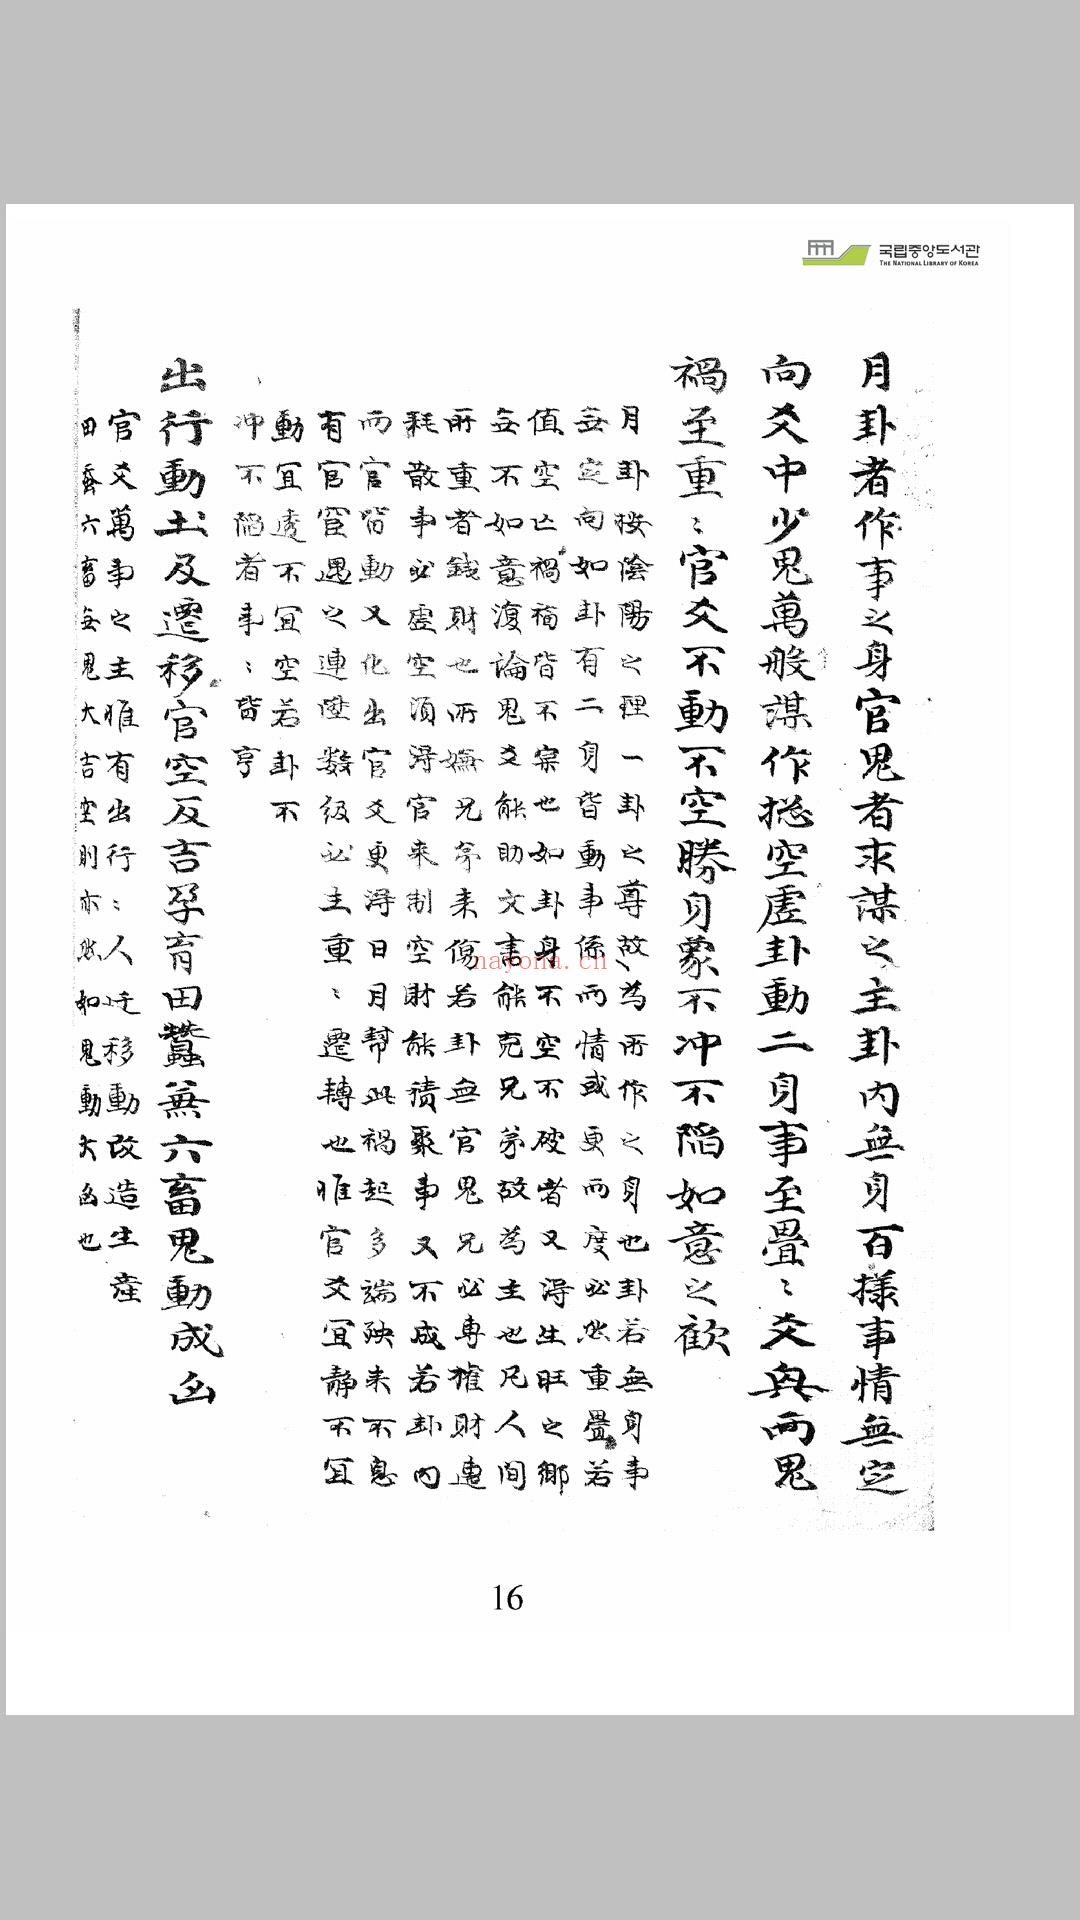 국립중앙도서관
THE NATIONAL LIBRARY OF KOREA
月卦者作事之身官鬼者求謀之主卦内無身百樣事情無定
向爻中少鬼萬般謀作揔空虛卦動二身事至疊〻爻興兩鬼
禍至重〻官爻不動不空勝身蒙不冲不陷如意之歡
月卦按陰陽之理一卦之尊故為所作之身也卦若無身事
無定向如卦有二身皆動事係而情或更而度必然重疊若
值空亡禍福皆不宲也如卦身不空不破者又得生旺之鄉
無不如意復論鬼爻能助文書能克兄弟故為主也凡人間
所重者錢財也所嫌兄弟来傷若卦無官鬼兄必專權財連
耗散事必虛空湏得官来制空財能積聚事又不成若卦内
而官皆動又化出官爻更得日月幫此禍起多端殃来不息
有官宦遇之連陞数級必主重〻遷轉也唯官爻宜静不宜
動宜透不宜空若卦不
冲不陷者事〻皆亨
出行動土及遷移官空反吉孕育田蠶兼六畜鬼動成凶
官爻萬事之主唯有出行〻人迁移動改造生産
田蚕六畜無鬼大吉空則亦然如鬼動大凶也
nayona.cn
16